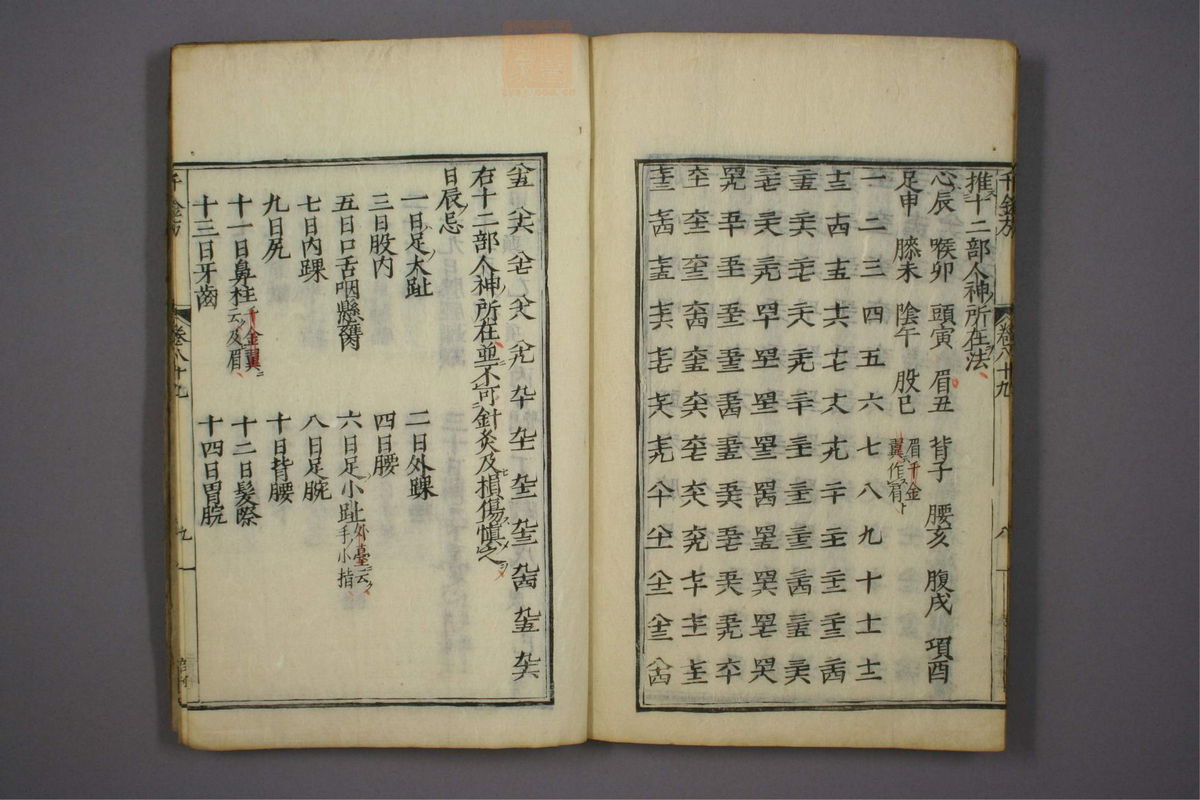 千金方 卷八十九 八
推十二部人神所在法
心辰 喉卯 頭寅 眉丑 背子 腰亥 腹戌 項酉
足申 膝未 陰午 股巳 眉千金翼作肩
一 二 三 四 五 六 七 八 九 十 十一 十二
十三 十四 十五 十六 十七 十八 十九 二十 二十一 二十二 二十三 二十四
二十五 二十六 二十七 二十八 二十九 三十 三十一 三十二 三十三 三十四 三十五 三十六
三十七 三十八 三十九 四十 四十一 四十二 四十三 四十四 四十五 四十六 四十七 四十八
四十九 五十 五十一 五十二 五十三 五十四 五十五 五十六 五十七 五十八 五十九 六十
六十一 六十二 六十三 六十四 六十五 六十六 六十七 六十八 六十九 七十 七十一 七十二
七十三 七十四 七十五 七十六 七十七 七十八 七十九 八十 八十一 八十二 八十三 八十四
八十五 八十六 八十七 八十八 八十九 九十 九十一 九十二 九十三 九十四 九十五 九十六
右十二部人神所在並不可針灸及損傷慎之
日辰忌
一日足大趾 二日外踝
三日股內 四日腰
五日口舌咽懸癰 六日足小趾外臺云手小指
七日內踝 八日足腕
九日尻 十日背腰
十一日鼻柱千金翼云及眉 十二日髮際
十三日牙齒 十四日胃脘
千金方 卷八十九 九